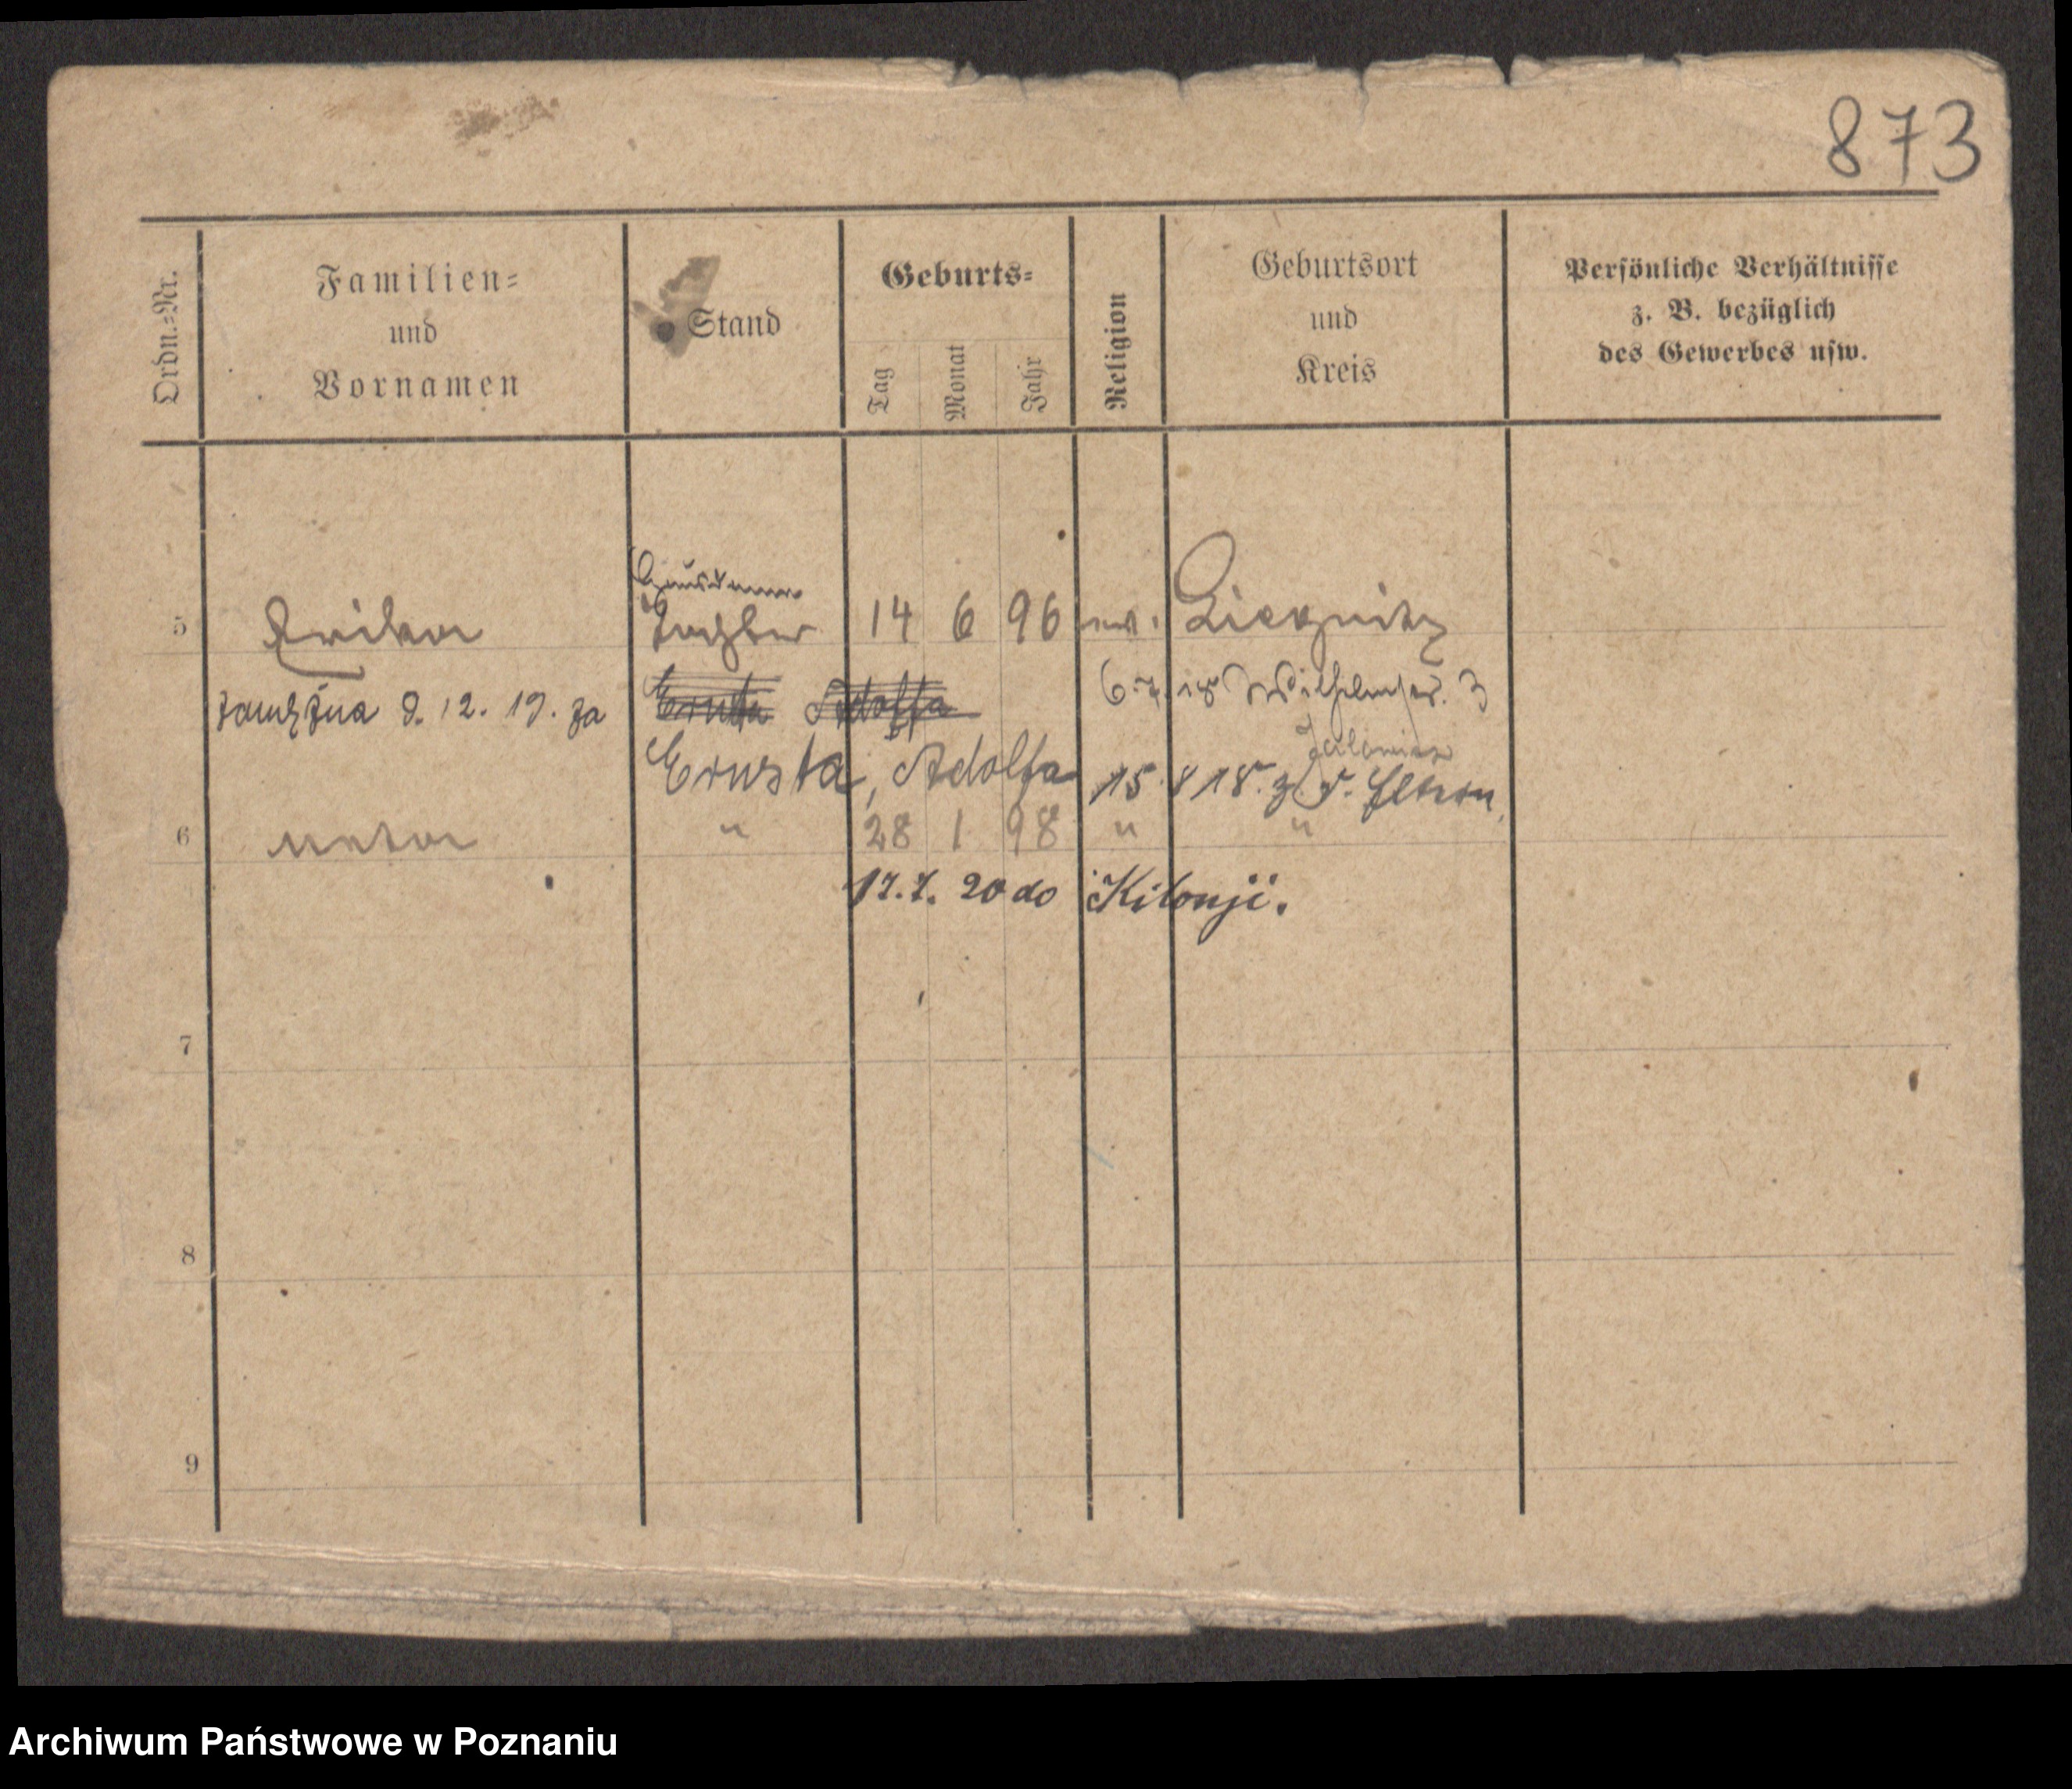 873
Ordn.-Nr.
Familien-
und
Vornamen
Stand
Geburts-
Tag
Monat
Jahr
Religion
Geburtsort
und
Kreis
Persönliche Verhältnisse
z. B. bezüglich
des Gewerbes usw.
5 Erika Tochter 14 6 96 ev. Liegnitz
6.7.18 Wilhelmstr. 3
zamężna 9. 12. 19. za Ernsta Adolfa
Ernsta, Adolfa 15 8 18. z. d. Eltern
6 " 28 1 98 " "
17.7. 20 do Kilonji.
7
8
9
Archiwum Państwowe w Poznaniu